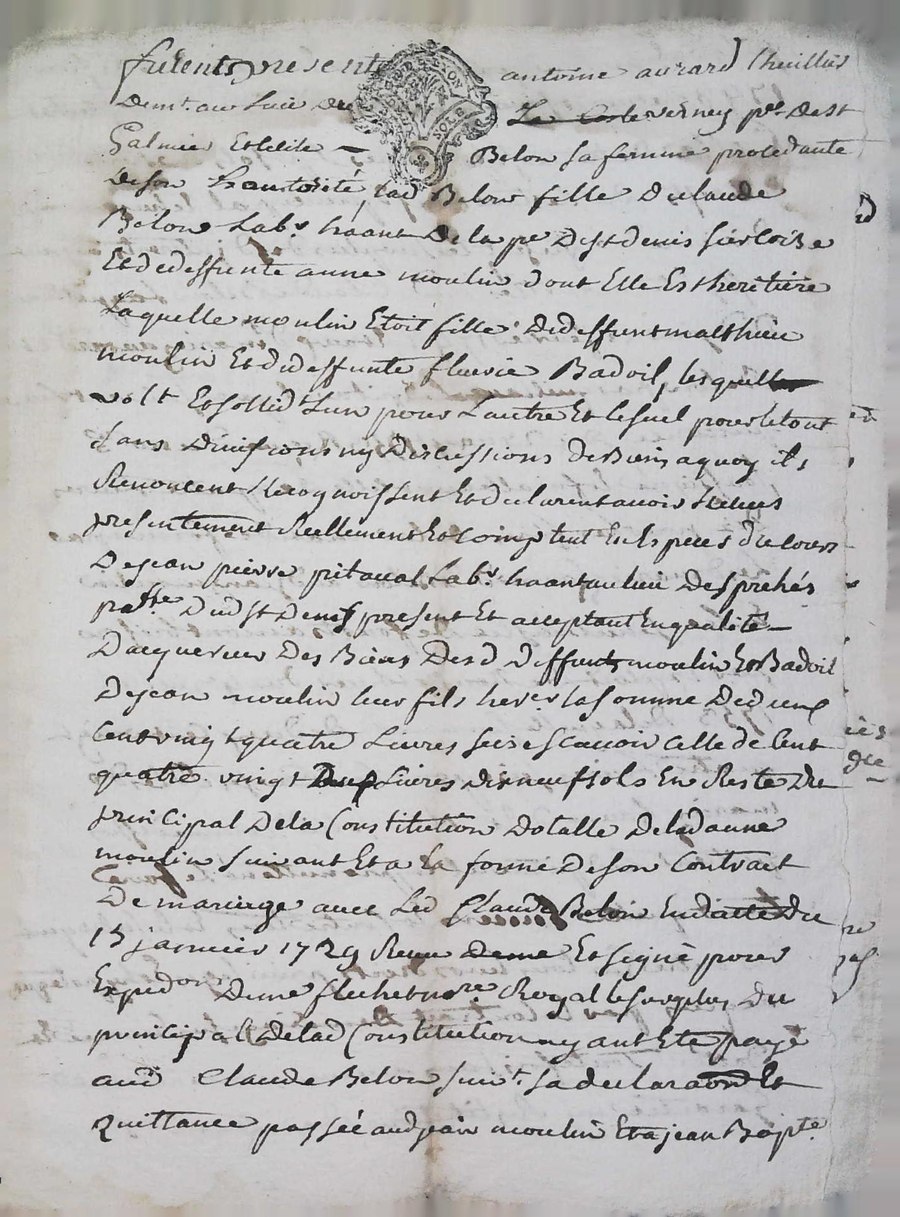 furent presents antoine avrard thuillier
demt au lieu du verney pse de st
Galmier et Belon sa femme procedante
de son hauthorité lad Belon fille de claude
Belon labr haant de la pse de st denis sur loise
Et de deffunte anne moulin dont Elle Est heretiere
Laquelle moulin Etoit fille de deffunt matthieu
moulin Et de deffunte fleurie Badoil, lesquells
solt Et sollidt L'un pour L'autre Et le seul pour le tout
sans Divisions ny Discussions de Biens a quoy ils
Renoncent Recognoissent Et declarent avoir Receus
presentement Reellement Et comptent En Especes du cours
De jean pierre pitaval Labr haant au lieu des
passe Dud st Denis present Et acceptant En qualité
D'acquereur Des Biens Desd Deffunts moulin Et Badoil
De jean moulin leur fils herer la somme De deux
Cent vingt quatre Livres scavoir celle de Cent
quatre vingt Livres dixneuf sols En Reste Du
principal De la Constitution Dotalle De lad anne
moulin suivant Et a la forme De son Contract
De mariage avec Led Claude Belon En datte Du
15 janvier 1729 Receu Et signé pour
Expedon Deme flechet nore Royal le surplus Du
principal De lad Constitution ayant Eté payé
aud Claude Belon suivt sa declaraon Et
Quittance passée aud jean moulin Et a jean Bapte